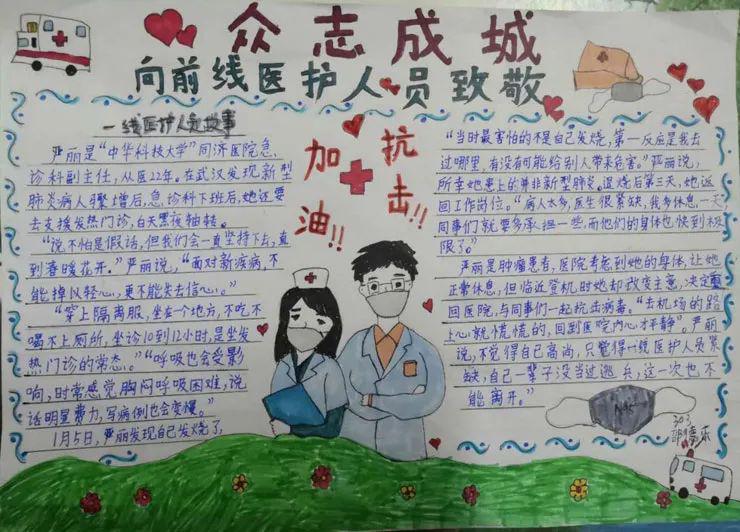 众志成城
向前线医护人员致敬
一线医护人员故事
严丽是“中华科技大学”同济医院急、
诊科副主任，从医22年。在武汉发现新型
肺炎病人骤增后，急诊科下班后，她还要
去支援发热门诊，白天黑夜轴转。
“说不怕是假话，但我们会一直坚持下去，直
到春暖花开。”严丽说，“面对新疾病，不
能掉以轻心，更不能失去信心。”
“穿上隔离服，坐在一个地方，不吃不
喝不上厕所，坐诊10到12小时，是坐发
热门诊的常态。”“呼吸也会受影
响，时常感觉胸闷呼吸困难，说
话明显费力，写病例也会变慢。”
1月5日，严丽发现自己发烧了，
加油!!
抗击!!
“当时最害怕的不是自己发烧，第一反应是我去
过哪里，有没有可能给别人带来危害。”严丽说，
所幸她患上的并非新型肺炎。退烧后第三天，她返
回工作岗位。“病人太多，医生很紧缺，我多休息一天，
同事们就要多承担一些，而他们的身体也快到极
限了。”
严丽是肿瘤患者，医院考虑到她的身体，让她
正常休息，但临近登机时她却改变主意，决定重
回医院，与同事们一起抗击病毒。“去机场的路
上心就慌慌的，回到医院内心才平静”。严丽
说，不觉得自己高尚，只觉得一线医护人员紧
缺，自己一辈子没当过逃兵，这一次也不
能离开。”
N95
303